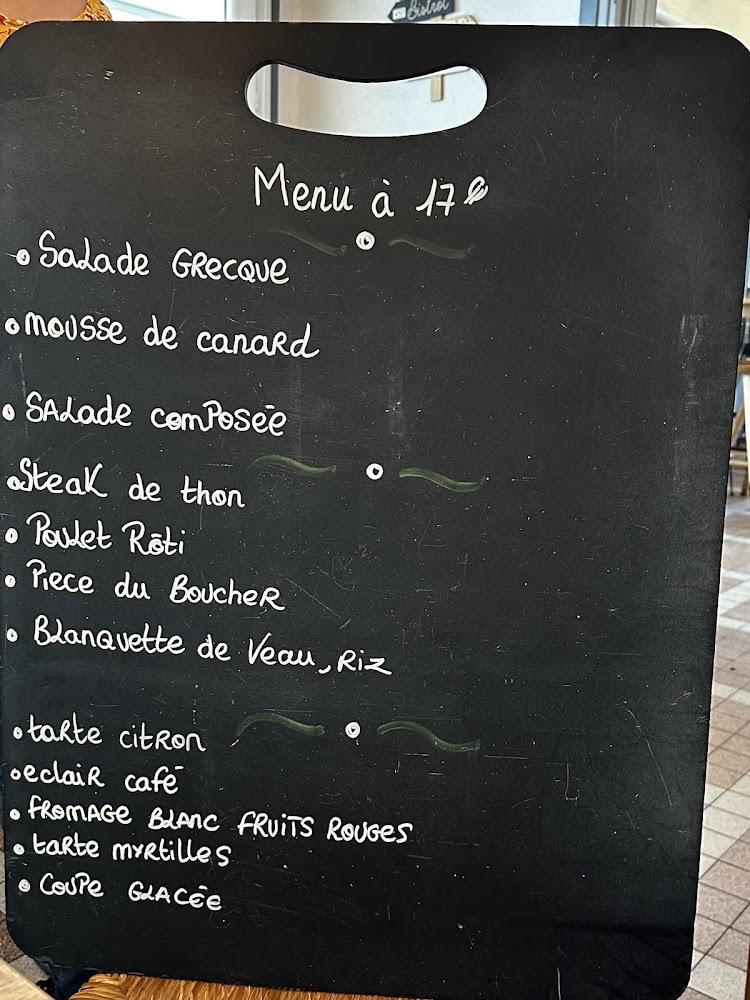 Bistrot
Menu à 17€
Salade GRecque
mousse de canaRd
SALade comPosée
Steak de thon
Poulet Rôti
Piece du BoucheR
BLanquette de Veau, Riz
taRte citRon
eclaiR café
fRomAGe BLAnc fRuiTs RouGes
taRte myRtilles
CouPe GLACée